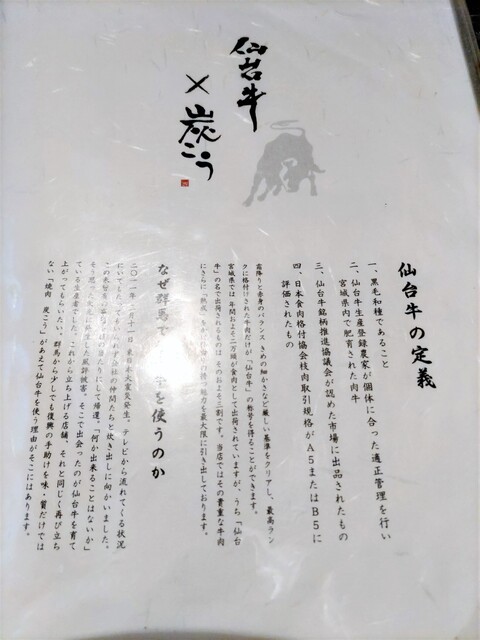 仙台牛
×
炭こう
仙台牛の定義
一、黒毛和種であること
二、仙台牛生産登録農家が個体に合った適正管理を行い
宮城県内で肥育された肉牛
三、仙台牛銘柄推進協議会が認めた市場に出品されたもの
四、日本食肉格付協会枝肉取引規格がA5またはB5に
評価されたもの
霜降りと赤身のバランス、きめの細かさなど厳しい基準をクリアし、最高ラン
クに格付けされた牛肉だけが、「仙台牛」の称号を得ることができます。
宮城県では年間およそ二万頭が食肉として出荷されていますが、うち「仙台
牛」の名で出荷されるものは そのおよそ三割です。当店ではその貴重な牛肉
にさらに「熟成」 魅力を最大限に引き出しております。
なぜ群馬で 牛を使うのか
二〇一一年三月十一日 東日本大震災発生。テレビから流れてくる状況
会社の仲間たちと炭き出しに向かいました。
にして帰還。「何か出来ることはないか」
そう思った 風評被害。そこで出会ったのが仙台牛を育て
ている生産者でした。これから立ち上げる店舗、それと同じく再び立ち
上がってもらいたい。群馬から少しでも復興の手助けを味・質だけでは
ない「焼肉 炭こう」があえて仙台牛を使う理由がそこにはあります。